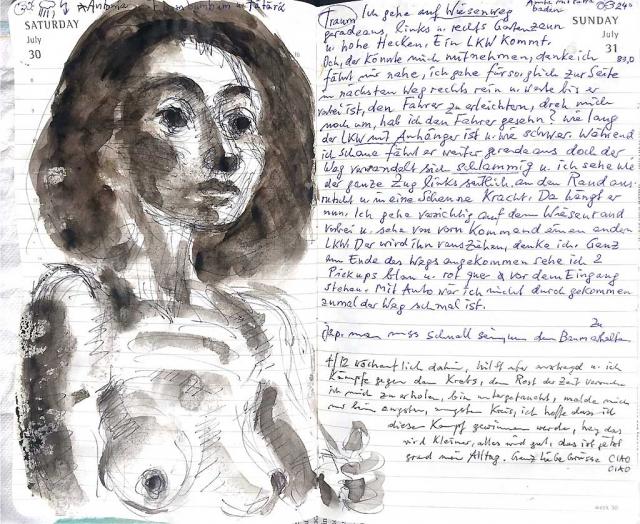 SATURDAY
July
30
SUNDAY
July
31
Traum Ich gehe auf Wiesenweg
geradeaus, links u. rechts Gartenzaun
u hohe Hecken. Ein LKW kommt.
Och, der könnte mich mitnehmen, denke ich
fährt mir nahe, ich gehe fürsorglich zur Seite
im nächsten Weg rechts rein u warte bis er
vorbei ist, den Fahrer zu erleichtern, dreh mich
noch um, hab ich den Fahrer gesehn? wie lang
der LKW mit Anhänger ist u. wie schwer. Während
ich schaue fährt er weiter geradeaus doch der
Weg verwandelt sich schlammig u. ich sehe wie
der ganze Zug links seitlich an den Rand aus
rutscht u in eine Scheune kracht. Da hängt er
nun. Ich gehe vorsichtig auf dem Wiesenrand
vorbei u. sehe von vorn kommend einen andern
LKW Der wird ihn rausziehn, denke ich. Ganz
am Ende des Wegs angekommen sehe ich 2
Pickups blau u. rot quer vor dem Eingang
stehen. Mit Auto wär ich nicht durchgekommen
zumal der Weg schmal ist.
man muss schnell sein um den Baum
4/12 wöchentlich dahin, hilft aber u. ich
kämpfe gegen den Krebs, den Rest der Zeit
ich mich zu erholen, bin untergetaucht, melde mich
nur bei engsten, engsten Kreis, ich hoffe dass ich
diesen Kampf gewinnen werde, hey das
wird Kleiner, alles wird gut, das ist jetzt
grad mein Alltag. Ganz liebe Grüsse CIAO
CIAO